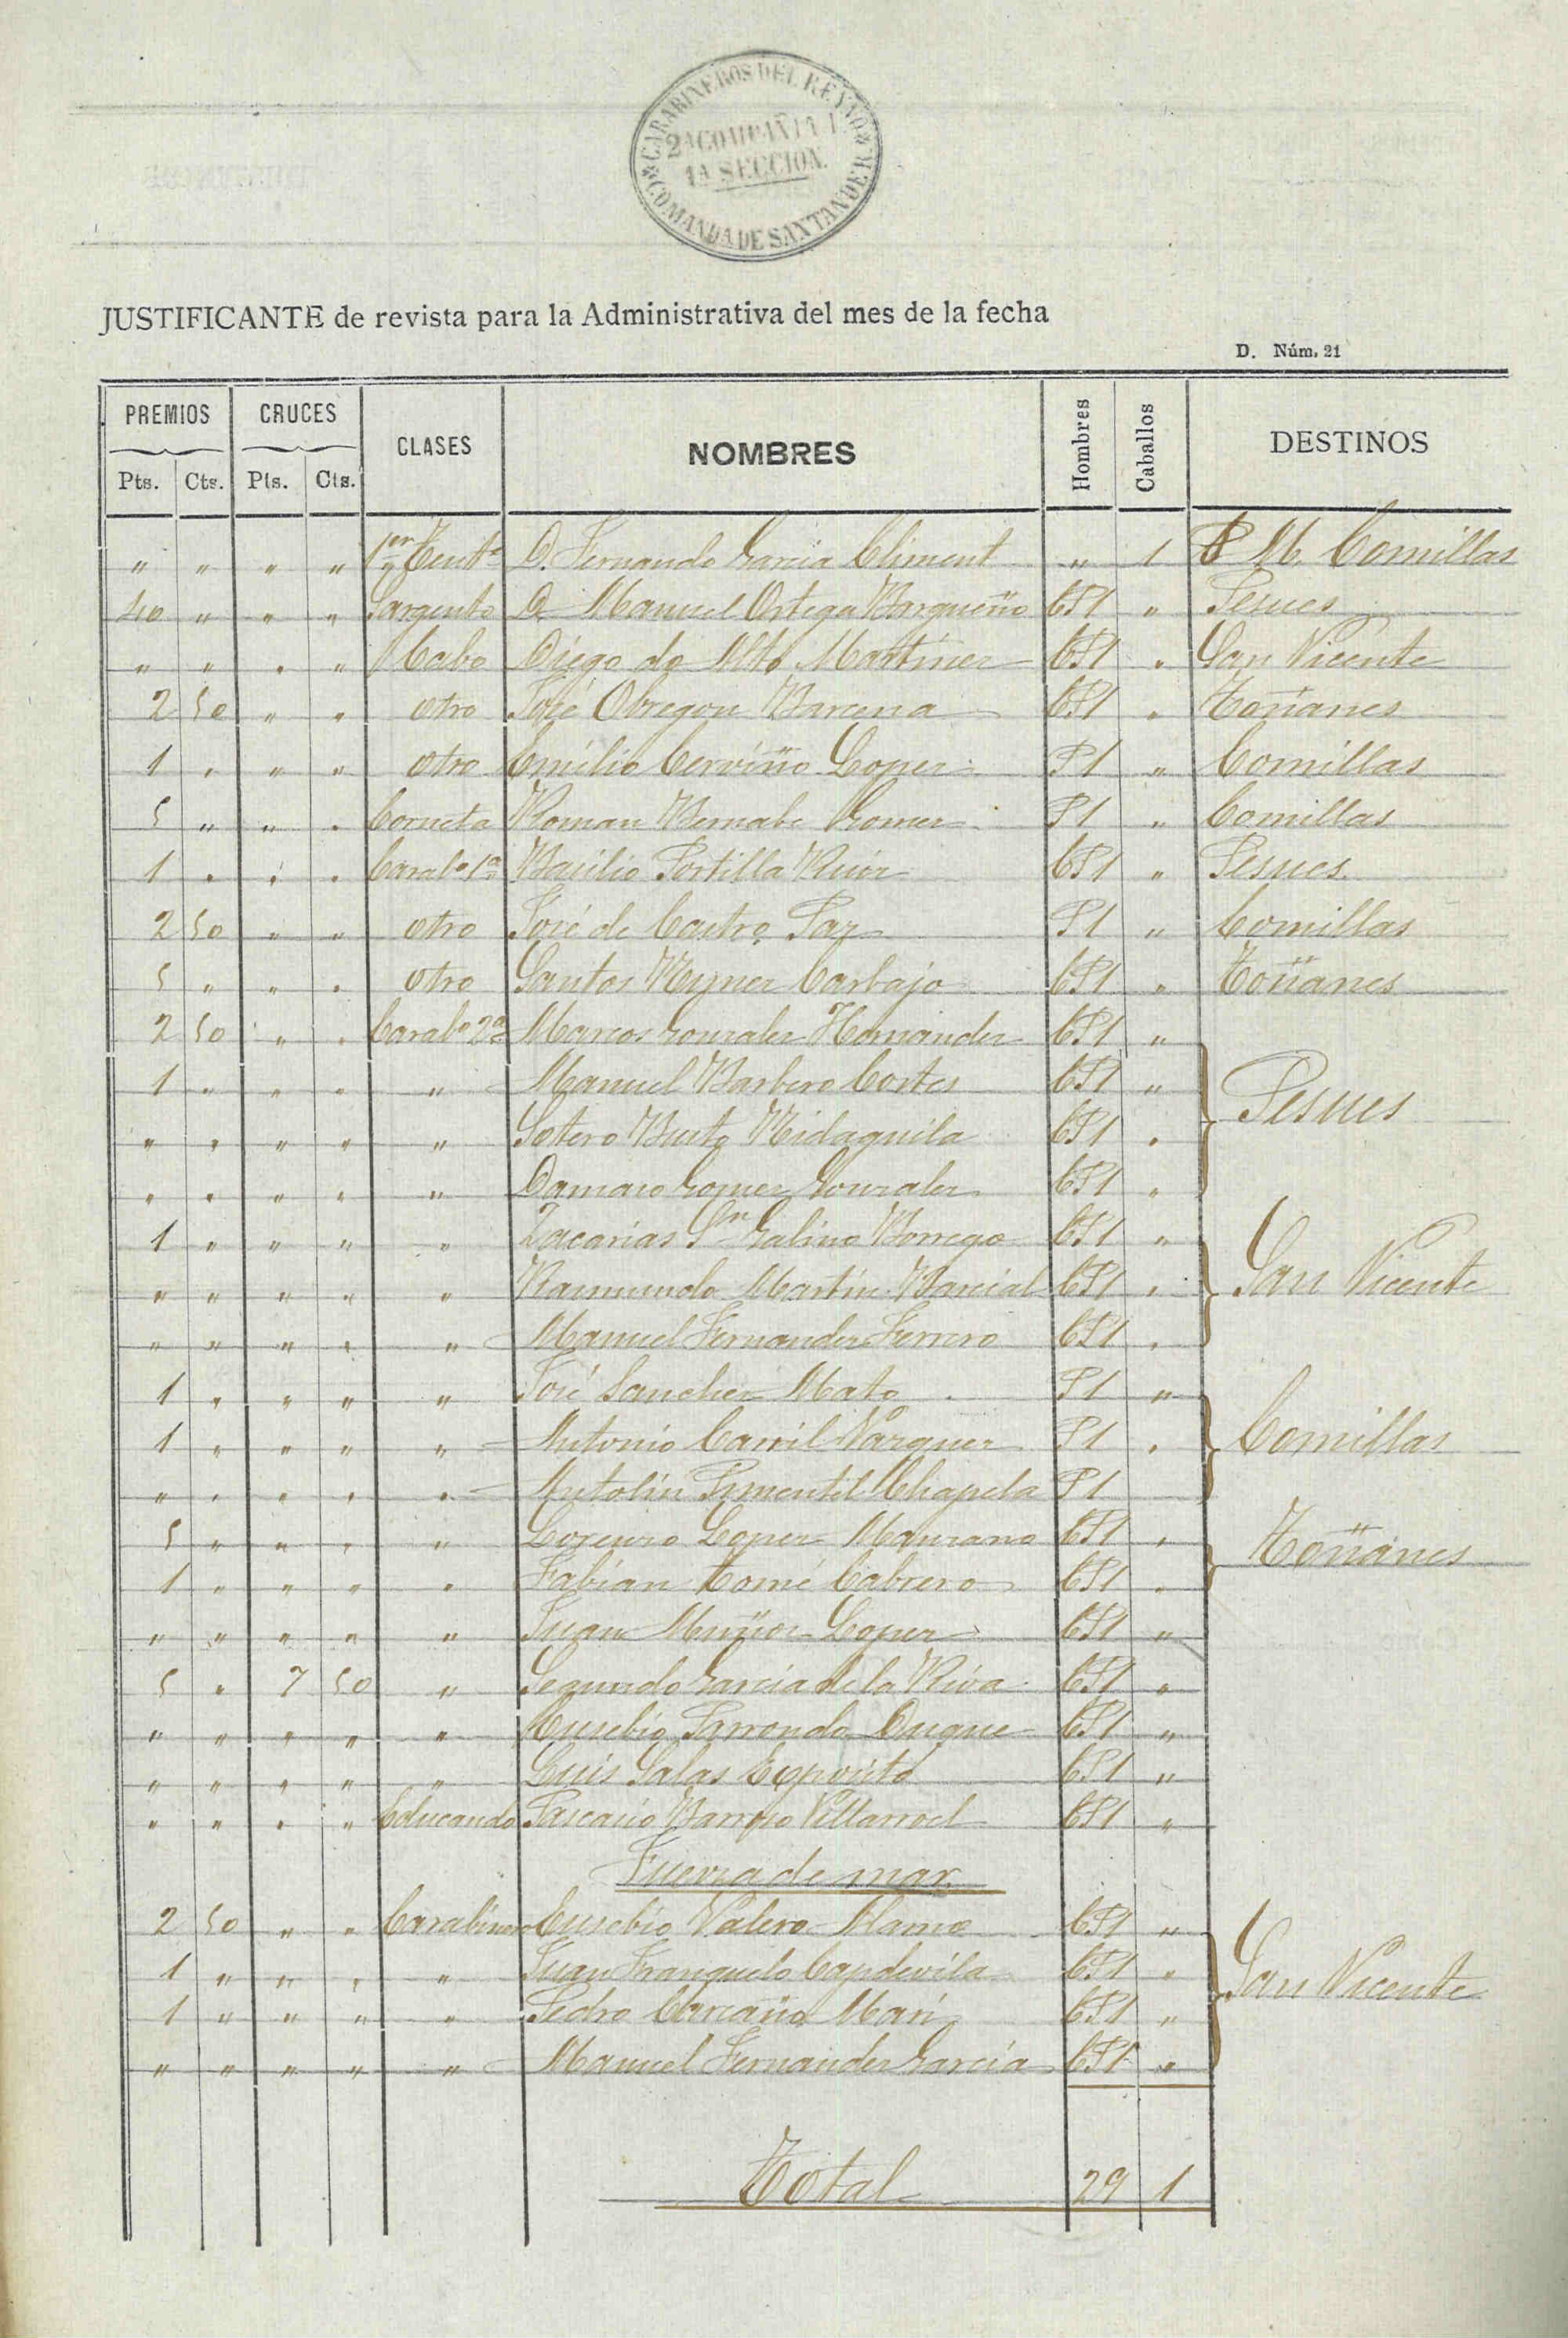 CARABINEROS DEL REYNO
2ª COMPAÑIA
1A SECCION.
COMANDA DE SANTANDER
JUSTIFICANTE de revista para la Administrativa del mes de la fecha
D. Núm. 21
PREMIOS CRUCES CLASES NOMBRES Hombres Caballos DESTINOS
Pts. Cts. Pts. Cts.
" " " " 1er Tente D. Fernando Garcia Climent " 1 P M. Comillas
40 " " " Sargento D. Manuel Ortega Barqueño CP1 " Pesues
" " " " Cabo Diego de Alto Martinez CP1 " San Vicente
2 50 " " otro José Obregon Barcena CP1 " Toñanes
1 " " " otro Emilio Cerviño Lopez P1 " Comillas
5 " " " Corneta Roman Bernabe Gomez P1 " Comillas
1 " " " Carabo 1a Basilio Portilla Ruiz CP1 " Pesues
2 50 " " otro José de Castro Paz P1 " Comillas
5 " " " otro Santos Carbajo CP1 " Toñanes
2 50 " " Carabo 2a Marcos Gonzalez Hernandez CP1 "
1 " " " " Manuel Barbero Cortes CP1 " Pesues
" " " " " Sotero CP1 "
" " " " " Damaso Gomez Gonzalez CP1 "
1 " " " " Zacarias Sn Galino Borrego CP1 "
" " " " " Raimundo Martin Barcial CP1 " San Vicente
" " " " " Manuel Fernandez Ferrero CP1 "
1 " " " " José Sanchez Mato P1 "
1 " " " " Antonio Carril Vazquez P1 " Comillas
" " " " " Antolin Pimentel Chapela P1
5 " " " " Lorenzo Lopez Manzano CP1 " Toñanes
1 " " " " Fabian Tomé Cabrero CP1 "
" " " " " Juan Muñoz Lopez CP1 "
5 " 7 50 " Segundo Garcia de la Riva CP1 "
" " " " " Eusebio Parrondo Duque CP1 "
" " " " " Luis Salas Exposito CP1 "
" " " " Educando Pascasio Barroso Villarroel CP1 "
Fuerza de mar
2 50 " " Carabinero Eusebio Valero Alamo CP1 "
1 " " " " Juan Franquelo Capdevila CP1 " San Vicente
1 " " " " Pedro Mari CP1 "
" " " " " Manuel Fernandez Garcia CP1 "
Total 29 1